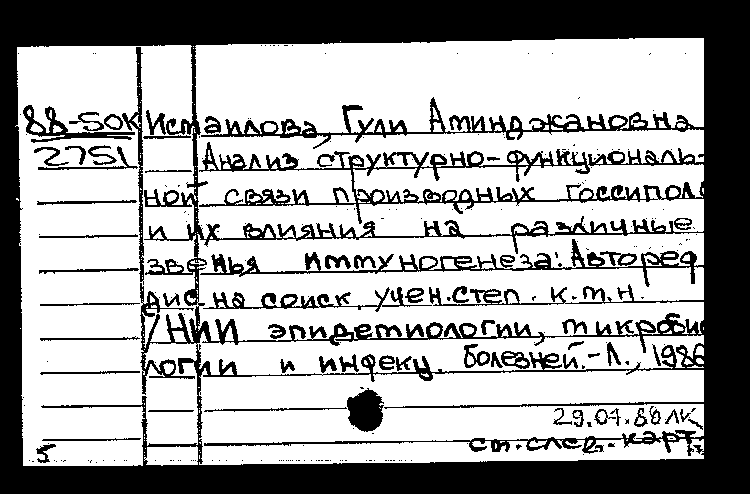 88-50К Исмаилова, Гули Аминджановна
2751 Анализ структурно-функциональ-
ной связи производных госсипола
и их влияния на различные
звенья иммуногенеза: Автореф
дис на соиск. учен.степ. к.м.н.
/НИИ эпидемиологии, микробио
логии и инфекц. болезней.-Л., 1986
29.04.88 ЛК
5 см.след.карт.